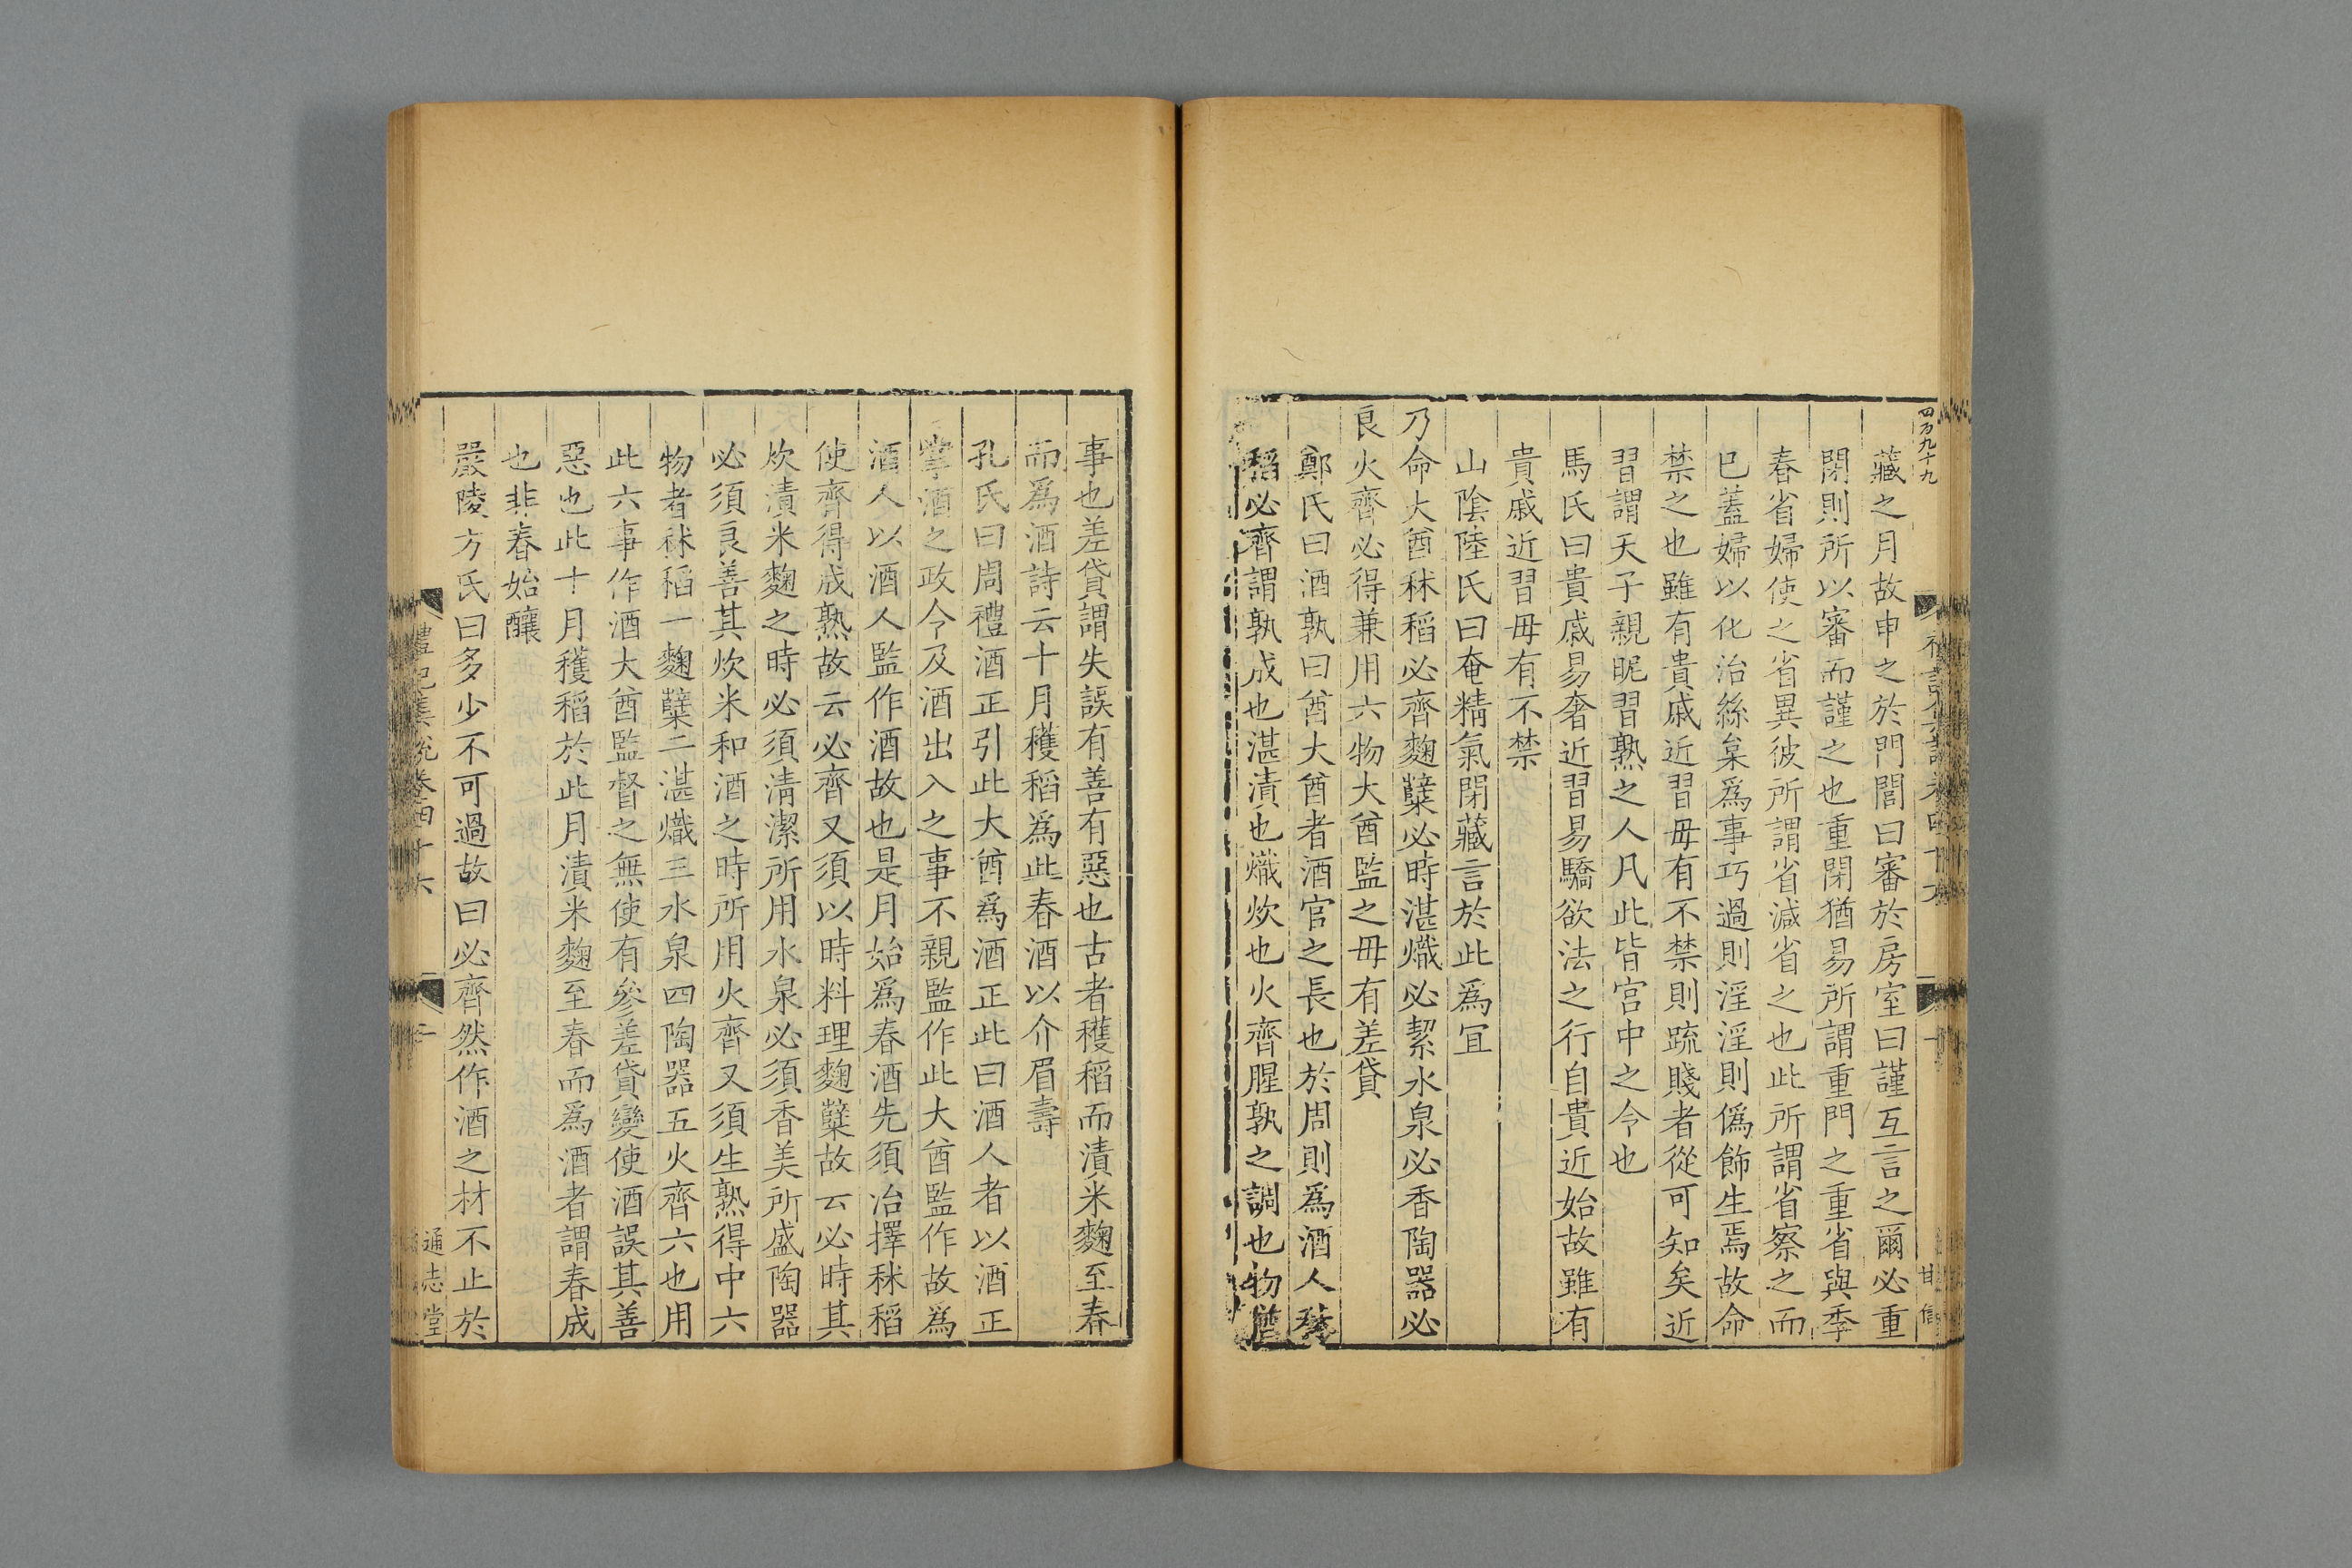 四万九十九
藏之月故申之於門閭曰審於房室曰謹互言之爾必重
閉則所以審而謹之也重閉猶易所謂重門之重省與季
春省婦使之省異彼所謂省減省之也此所謂省察之而
已蓋婦以化治絲枲爲事巧過則淫淫則僞飾生焉故命
禁之也雖有貴戚近習毋有不禁則疏賤者從可知矣近
習謂天子親昵習熟之人凡此皆宫中之令也
馬氏曰貴戚易奢近習易驕欲法之行自貴近始故雖有
貴戚近習毋有不禁
山陰陸氏曰奄精氣閉藏言於此爲宜
乃命大酋秫稻必齊麴糵必時湛熾必絜水泉必香陶器必
良火齊必得兼用六物大酋監之毋有差貸
鄭氏曰酒孰曰酋大酋者酒官之長也於周則爲酒人秫
稻必齊謂孰成也湛漬也熾炊也火齊腥孰之調也物猶
事也差貸謂失誤有善有惡也古者穫稻而漬米麴至春
而爲酒詩云十月穫稻爲此春酒以介眉壽
孔氏曰周禮酒正引此大酋爲酒正此曰酒人者以酒正
掌酒之政令及酒出入之事不親監作此大酋監作故爲
酒人以酒人監作酒故也是月始爲春酒先須治擇秫稻
使齊得成熟故云必齊又須以時料理麴糵故云必時其
炊漬米麴之時必須清潔所用水泉必須香美所盛陶器
必須良善其炊米和酒之時所用火齊又須生熟得中六
物者秫稻一麴糵二湛熾三水泉四陶器五火齊六也用
此六事作酒大酋監督之無使有參差貸變使酒誤其善
惡也此十月穫稻於此月漬米麴至春而爲酒者謂春成
也非春始釀
嚴陵方氏曰多少不可過故曰必齊然作酒之材不止於
禮記集說卷四十六
通志堂